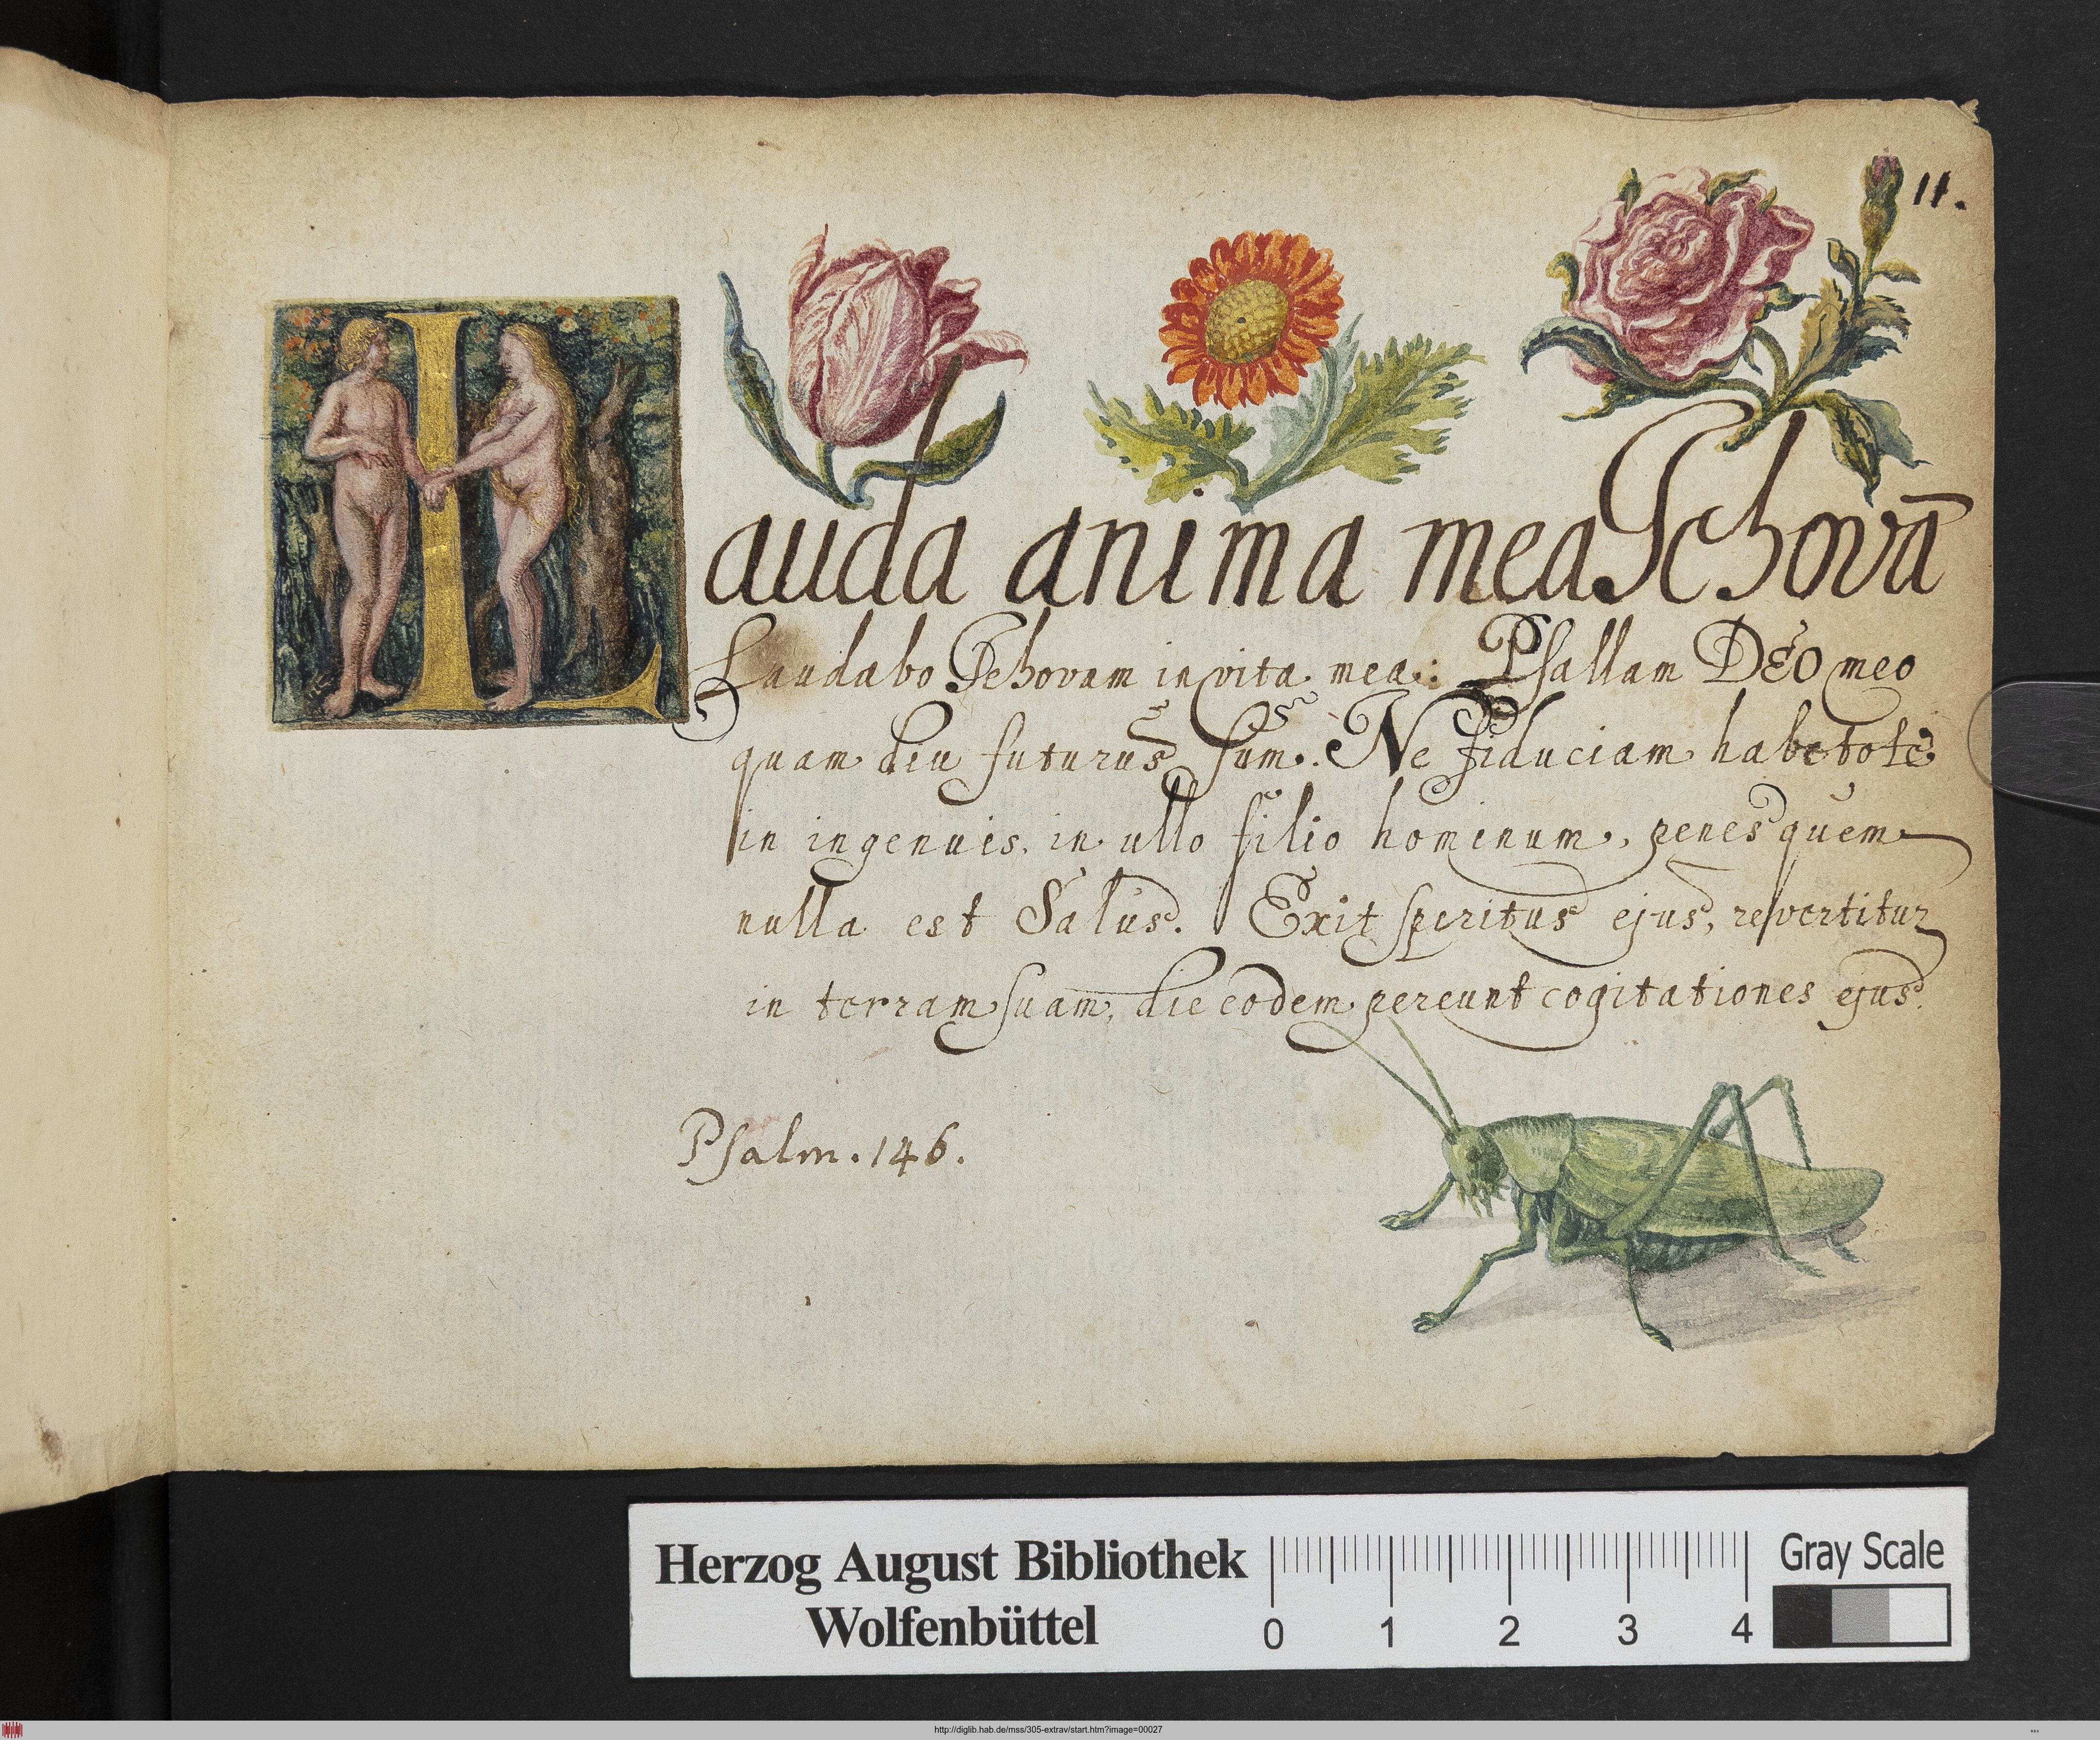 11.
Lauda anima mea Jehovā
Laudabo Jehovam in vita mea: Psallam DEO meo
quam diu futurus sum. Ne fiduciam habetote
in ingenuis, in ullo filio hominum, penes quem
nulla est Salus. Exit spiritus ejus, revertitur
in terram suam, die eodem pereunt cogitationes ejus.
Psalm. 146.
Herzog August Bibliothek
Wolfenbüttel
0 1 2 3 4
Gray Scale
http://diglib.hab.de/mss/305-extrav/start.htm?image=00027